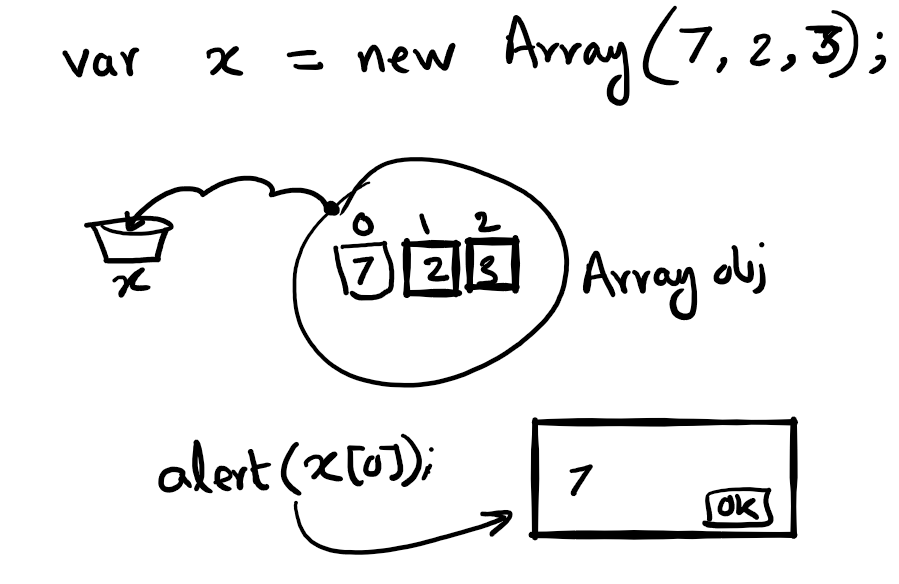 var x = new Array(7, 2, 3);
0 1 2
7 2 3
x
Array obj
alert(x[0]);
7
OK